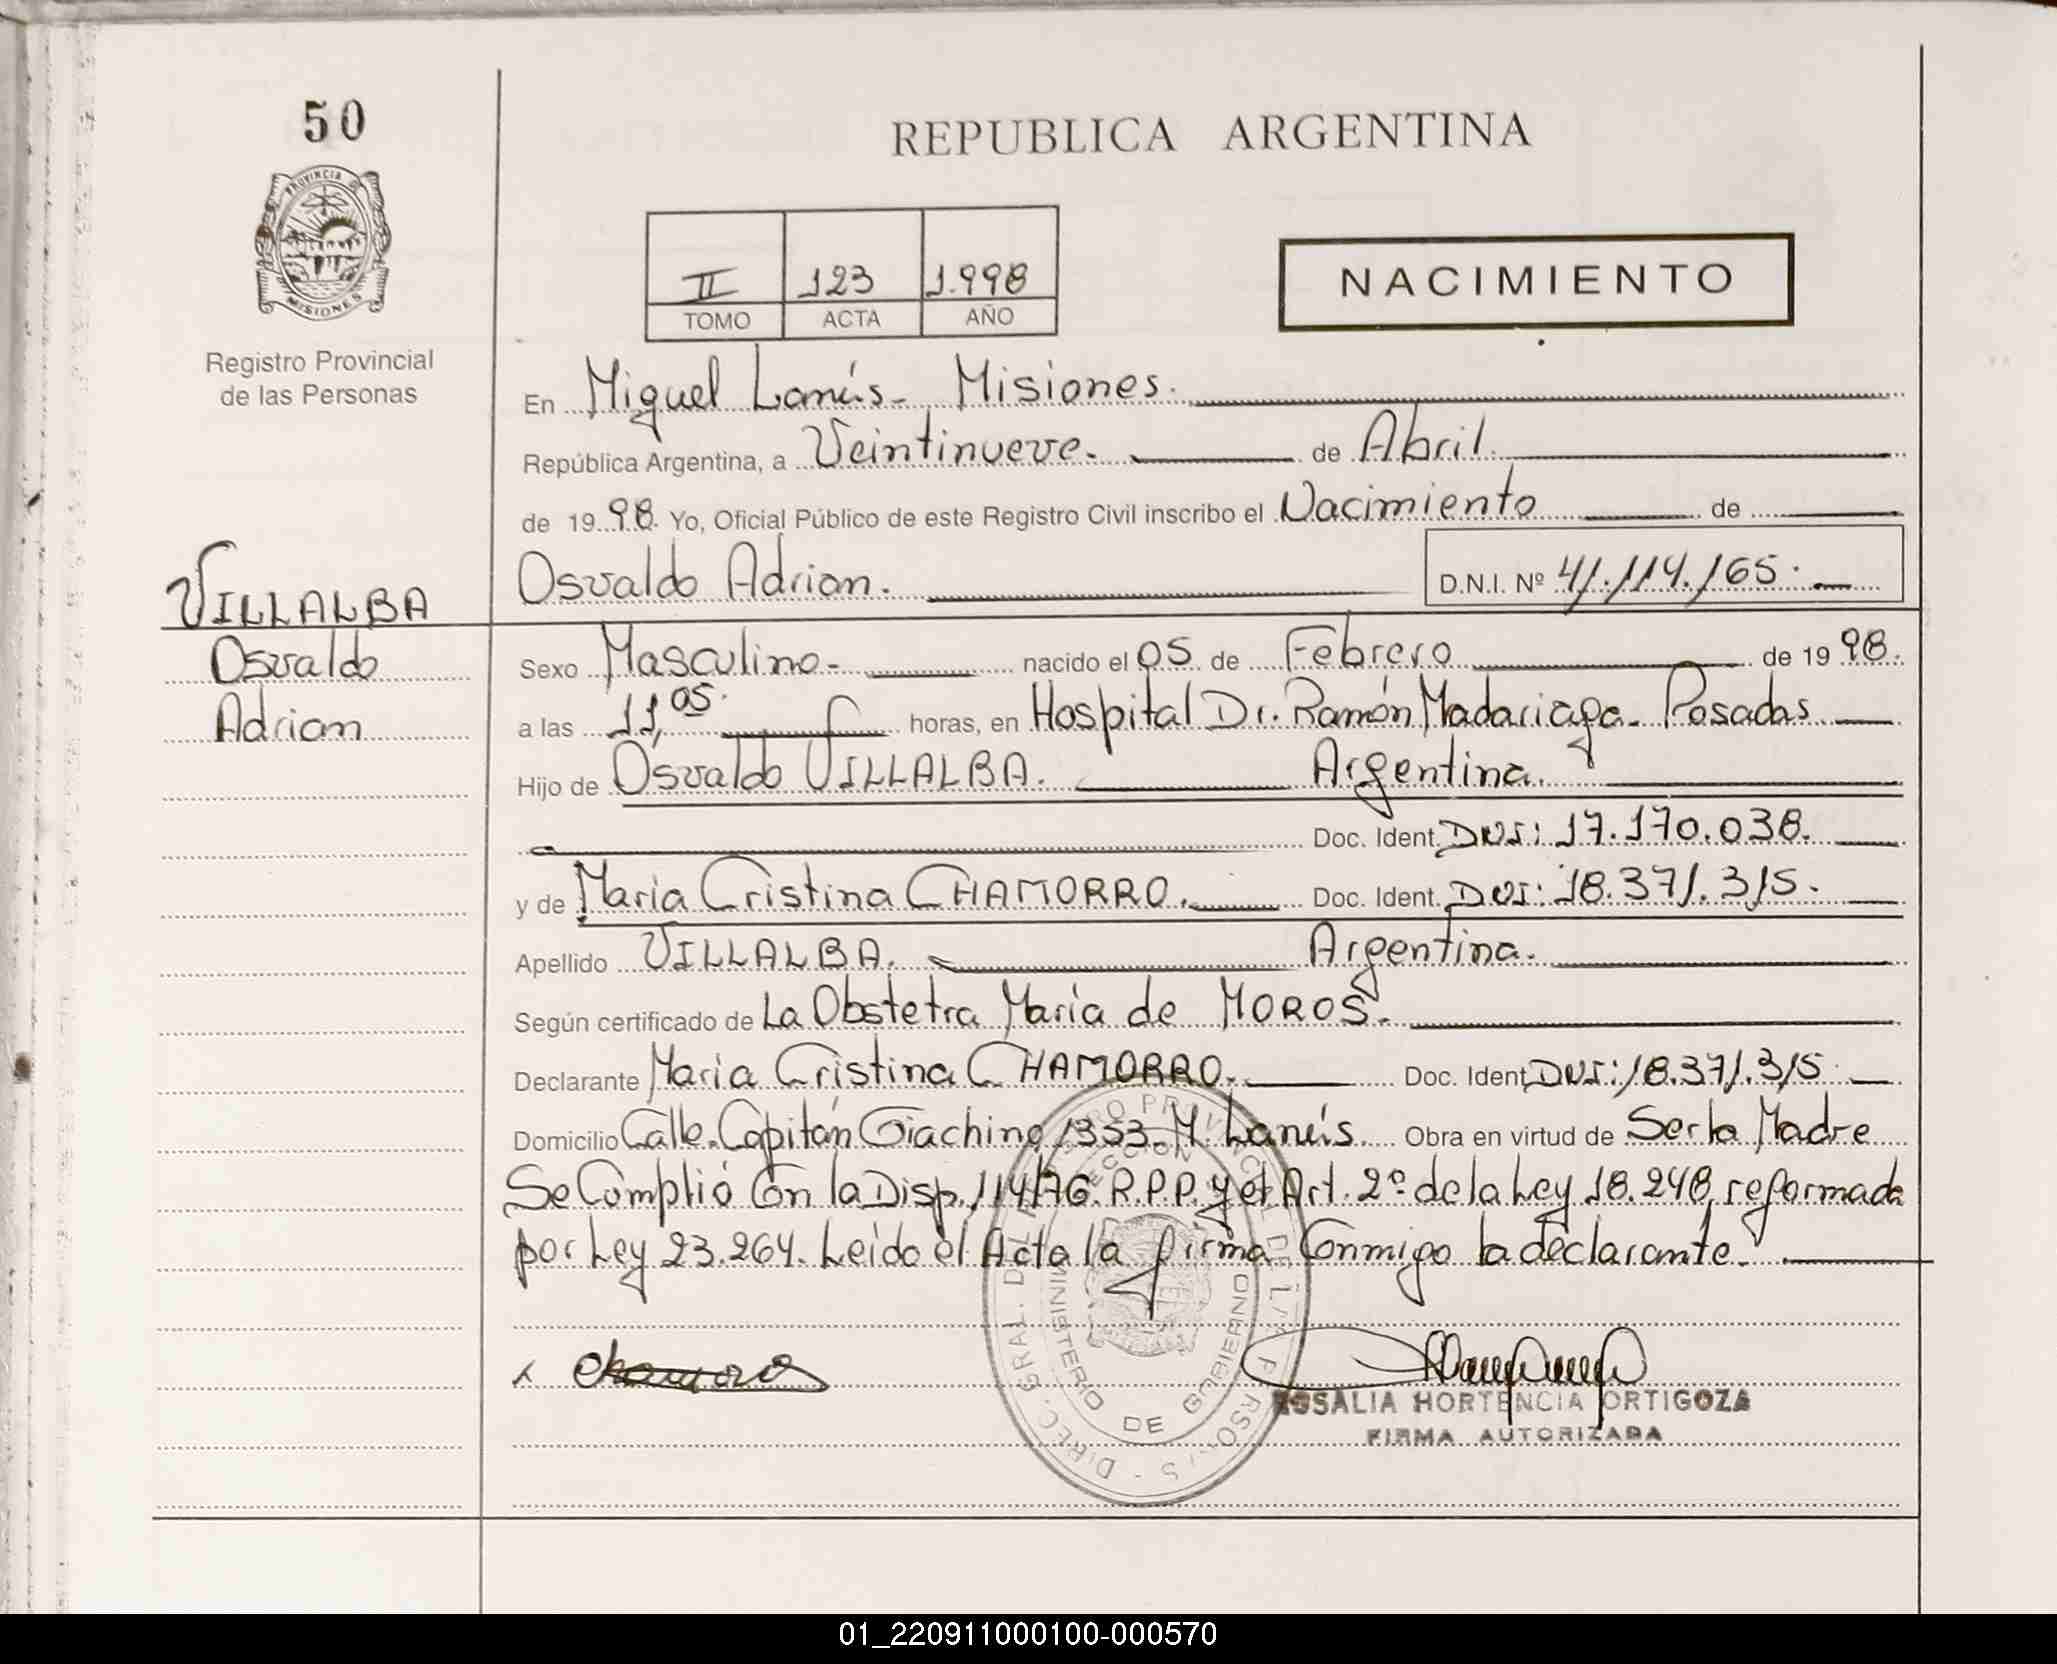 50
PROVINCIA DE
MISIONES
Registro Provincial
de las Personas
VILLALBA
Osvaldo
Adrian
REPUBLICA ARGENTINA
II 123 1.998
TOMO ACTA AÑO
NACIMIENTO
En Miguel Lanús - Misiones.
República Argentina, a Veintinueve. de Abril.
de 1998. Yo, Oficial Público de este Registro Civil inscribo el Nacimiento de
Osvaldo Adrian. D.N.I. Nº 41.114.165.
Sexo Masculino. nacido el 05 de Febrero de 1998.
a las 11,05. horas, en Hospital Dr. Ramón Madariaga. Posadas
Hijo de Osvaldo VILLALBA. Argentina.
Doc. Ident. DNI: 17.170.038.
y de Maria Cristina CHAMORRO. Doc. Ident. DNI: 18.371.315.
Apellido VILLALBA. Argentina.
Según certificado de La Obstetra María de MOROS.
Declarante Maria Cristina CHAMORRO. Doc. Ident. DNI: 18.371.315.
Domicilio Calle Capitán Giachino 1353 - M. Lanús. Obra en virtud de Ser la Madre
Se Cumplió Con la Disp. 114/76. R.P.P. y el Art. 2º de la Ley 18.248, reformada
por Ley 23.264. Leído el Acta la firma Conmigo la declarante.
x Chamorro
ROSALIA HORTENCIA ORTIGOZA
FIRMA AUTORIZADA
MINISTERIO DE GOBIERNO
01_220911000100-000570